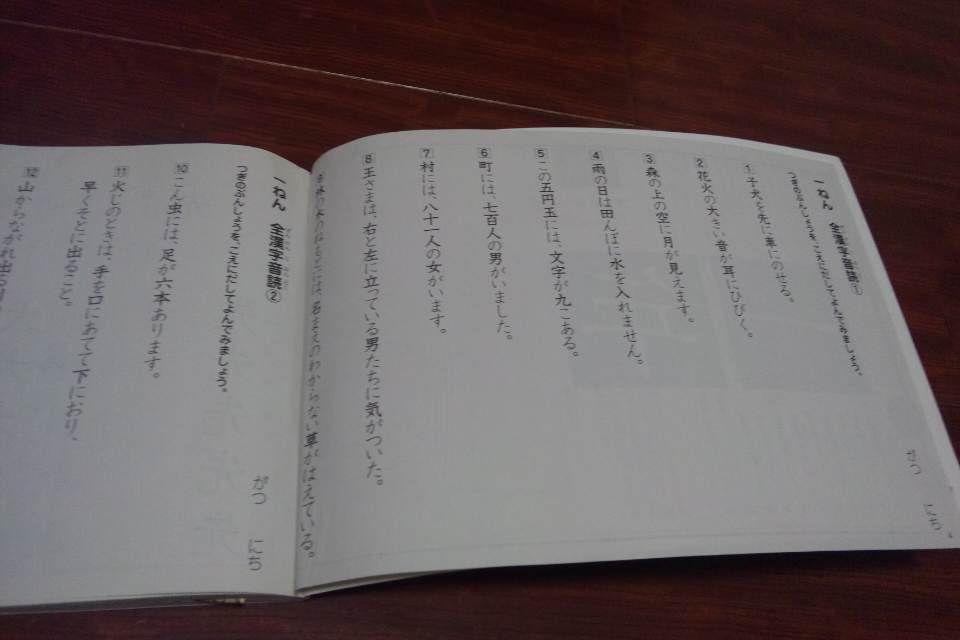 一ねん 全漢字音読①
つぎのぶんしょうを、こえにだしてよんでみましょう。
がつ にち
1 子犬を先に車にのせる。
2 花火の大きい音が耳にひびく。
3 森の上の空に月が見えます。
4 雨の日は田んぼに水を入れません。
5 この五円玉には、文字が九こある。
6 町には、七百人の男がいました。
7 村には八十一人の女がいます。
8 王さまは、右と左に立っている男たちに気がついた。
9 林の木のねもとには、名まえのわからない草がはえている。
一ねん 全漢字音読②
つぎのぶんしょうを、こえにだしてよんでみましょう。
がつ にち
10 こん虫には、足が六本あります。
11 火じのときは、手を口にあてて下におり、
早くそとに出ること。
12 山からながれ出る